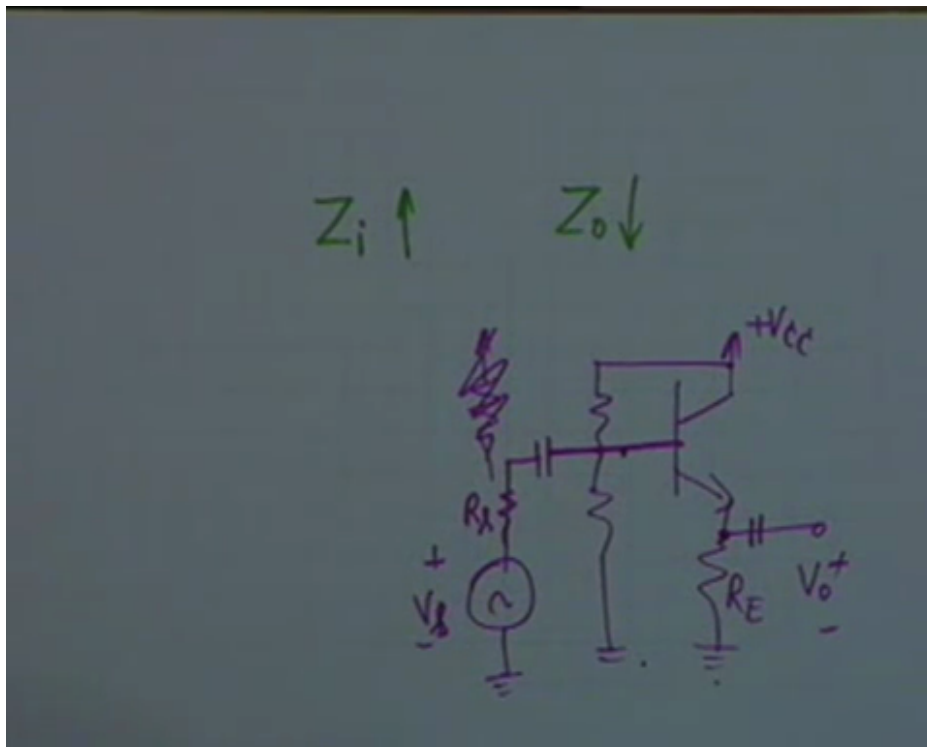 Zi ↑ Zo ↓
+Vcc
Rs
+
Vs
-
RE
Vo +
-